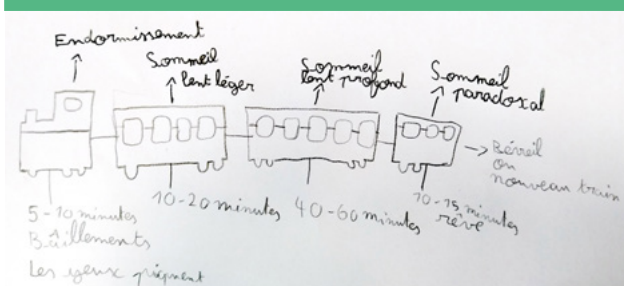 Endormissement
Sommeil
lent léger
Sommeil
lent profond
Sommeil
paradoxal
Réveil
ou
nouveau train
5-10 minutes
Bâillements
Les yeux piquent
10-20 minutes
40-60 minutes
10-15 minutes
rêve